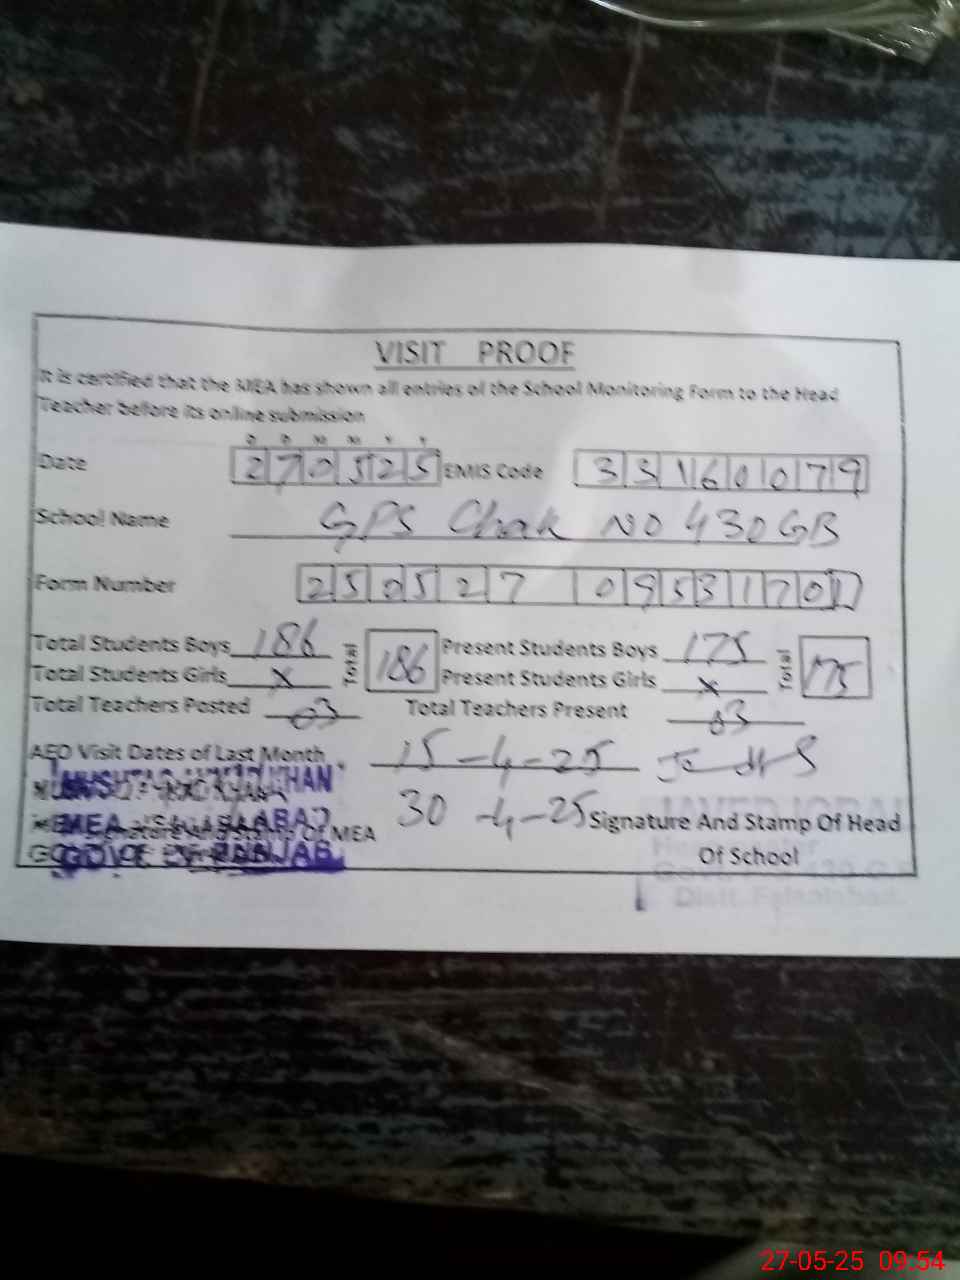 VISIT PROOF
It is certified that the MEA has shown all entries of the School Monitoring Form to the Head
Teacher before its online submission
D D M M Y Y
Date 270525 EMIS Code 33160079
School Name GPS Chak NO 430 GB
Form Number 250527 0953170
Total Students Boys 186 Total 186 Present Students Boys 175 Total 175
Total Students Girls x Present Students Girls x
Total Teachers Posted 03 Total Teachers Present 03
AEO Visit Dates of Last Month 15-4-25
KHAN
30-4-25 Signature And Stamp Of Head
MEA Of MEA
Of School
GOVT. OF PUNJAB
JAVED IQBAL
Distt. Faisalabad.
27-05-25 09:54